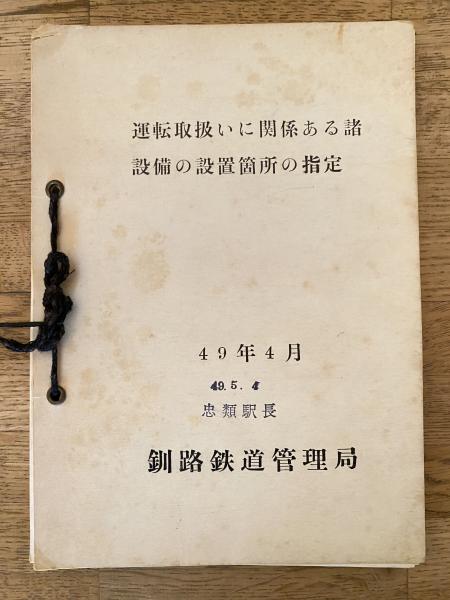 運転取扱いに関係ある諸
設備の設置箇所の指定
49年4月
49.5.4
忠類駅長
釧路鉄道管理局